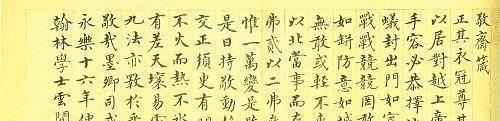 敬齋箴
正其衣冠尊其
以居對越上帝
手容必恭擇
蟻封出門如賓
戰戰兢兢罔敢
如缾防意如城
無敢或輕不
以北當事而
弗貳以二弗
惟一萬變是
是日持敬動
交正須臾有
不火而熱不
有差天壤易
九法亦斁於
敬哉墨卿司
永樂十六年
翰林學士雲間